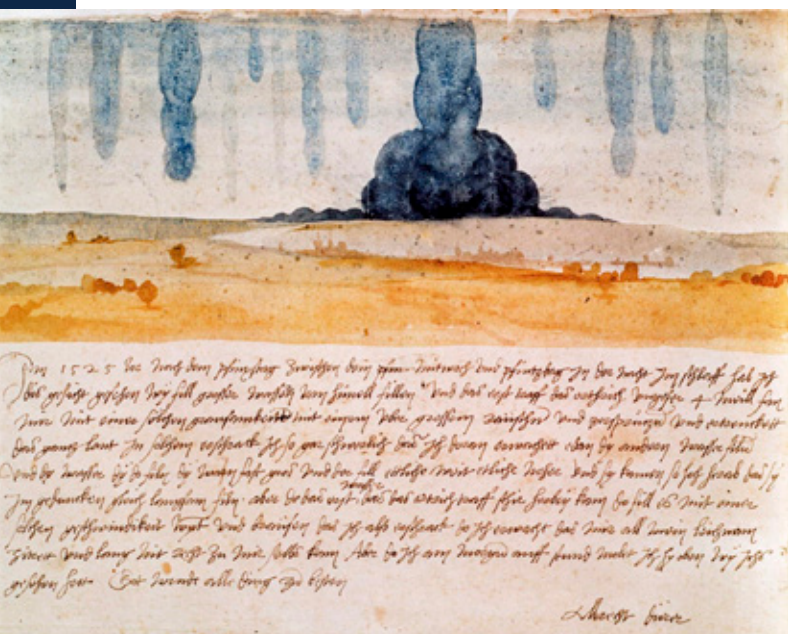 Im 1525 Jor nach dem pfinxstag zwischen dem Mitwoch und pfintzdag in der nacht im schlaff hab ich
dis gesicht gesehen wy fill grosser wassern vom himell fillen Und das erst traff das erthrich ungefer 4 meill fan
mir mit einer solchen grausamkeitt mit einem uber grossem raüschn und zersprützn und ertrenckett
das gantz lant In solchem erschrack ich so gar schwerlich das ich doran erwachett edan dy andern wasser filn
Und dy wasser dy do filn dy warn fast gros und der fill ettliche weit etliche neher und sy kamen so hoch herab das sy
im gedancken gleich langsam filn aber do das erst wasser das das ertrich traff schir herbey kam do fill es mit einer
solchen geschwindikeit wynt und braüsen das ich also erschrack do ich erwacht das mir all mein leichnam
zitrett und lang nit recht zu mir selbs kam Aber do ich am morgen auff stund molet ich hy oben wy ichs
gesehen hett Got wende alle ding zu besten
Albrecht dürer